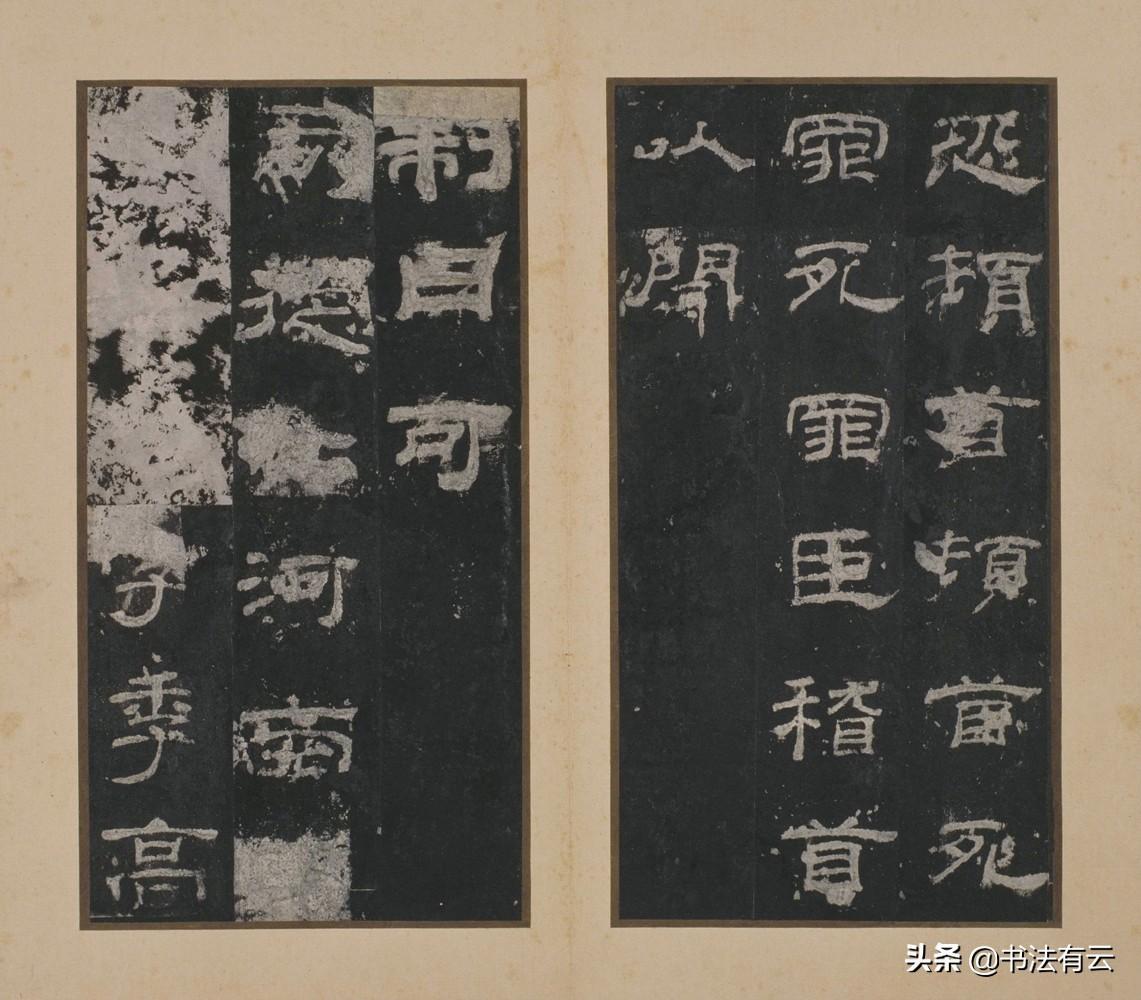 恐頓首頓首死
罪死罪臣稽首
以聞
制曰可
司徒公河南
字季高
头条 @书法有云